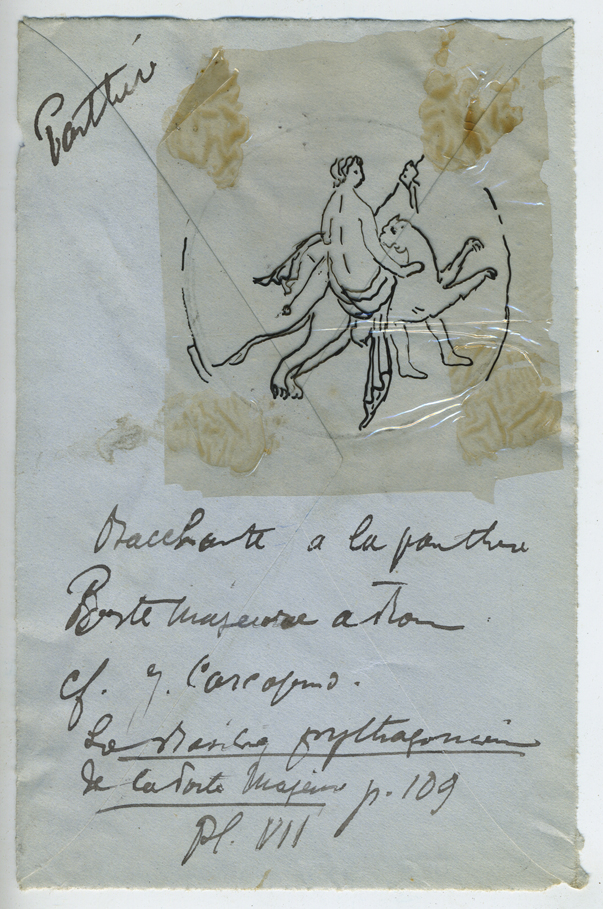 Panthère
Bacchante a la panthere
Porte Majeure a Rome
cf. J. Carcopino.
La Basilique pythagoricienne
de la Porte Majeure p. 109
Pl. VII